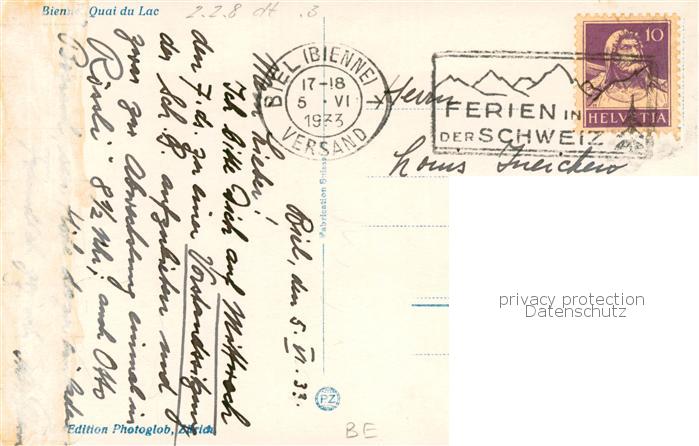 Bienne, Quai du Lac
2.2.8 dt .3
BIEL (BIENNE) 1
17-18
5. VI
1933
VERSAND
FERIEN IN
DER SCHWEIZ
10
HELVETIA
Herrn
Louis
Biel, den 5. VI. 33.
Mein Lieber,
Ich bitte Dich auf Mittwoch
den 7. ds. zu einer Vorstandssitzung
der Sch. G. aufzubieten und
zwar zur Abwechslung einmal im
"Rössli" 8 1/2 Uhr, auch Otto
Fabrication Suisse
PZ
Edition Photoglob, Zürich
BE
privacy protection
Datenschutz